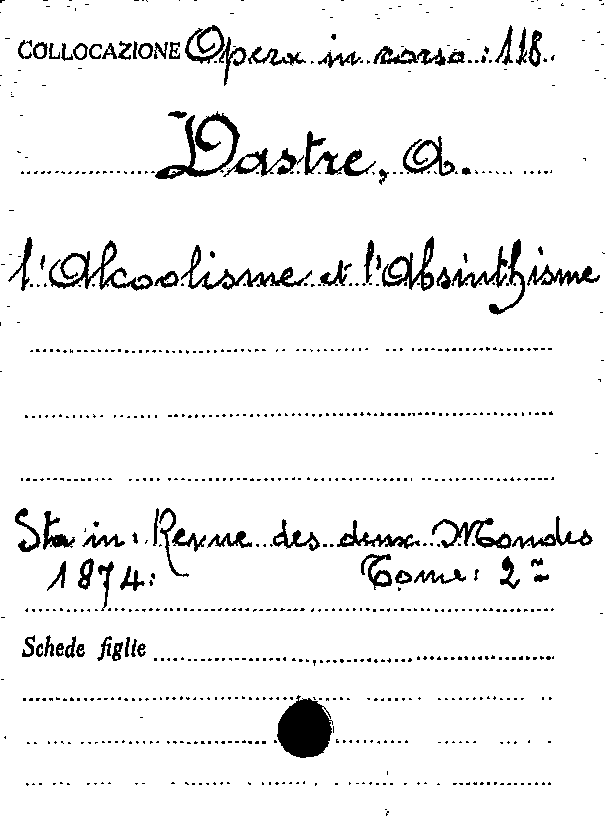 COLLOCAZIONE Opera in corso: 118.
Dastre, A.
l'Alcoolisme et l'Absinthisme
Sta in: Revue des deux Mondes
1874: Tome: 2
Schede figlie